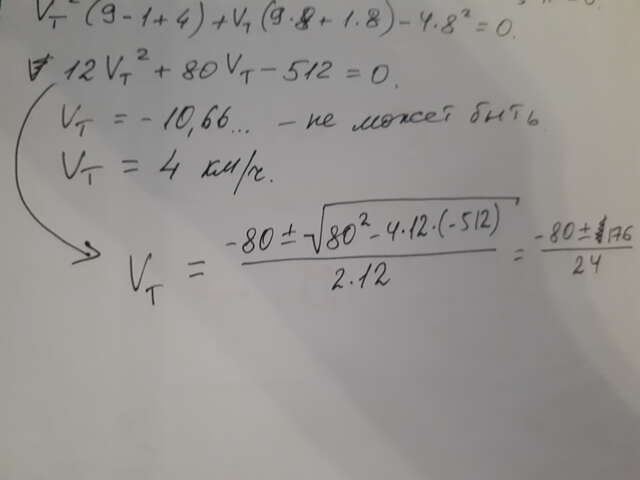 V_T² (9-1+4) + V_T (9·8 + 1·8) - 4·8² = 0.
12V_T² + 80V_T - 512 = 0.
V_T = -10,66... - не может быть
V_T = 4 км/ч.
V_T = (-80 ± √(80² - 4·12·(-512))) / (2·12) = (-80 ± 176) / 24